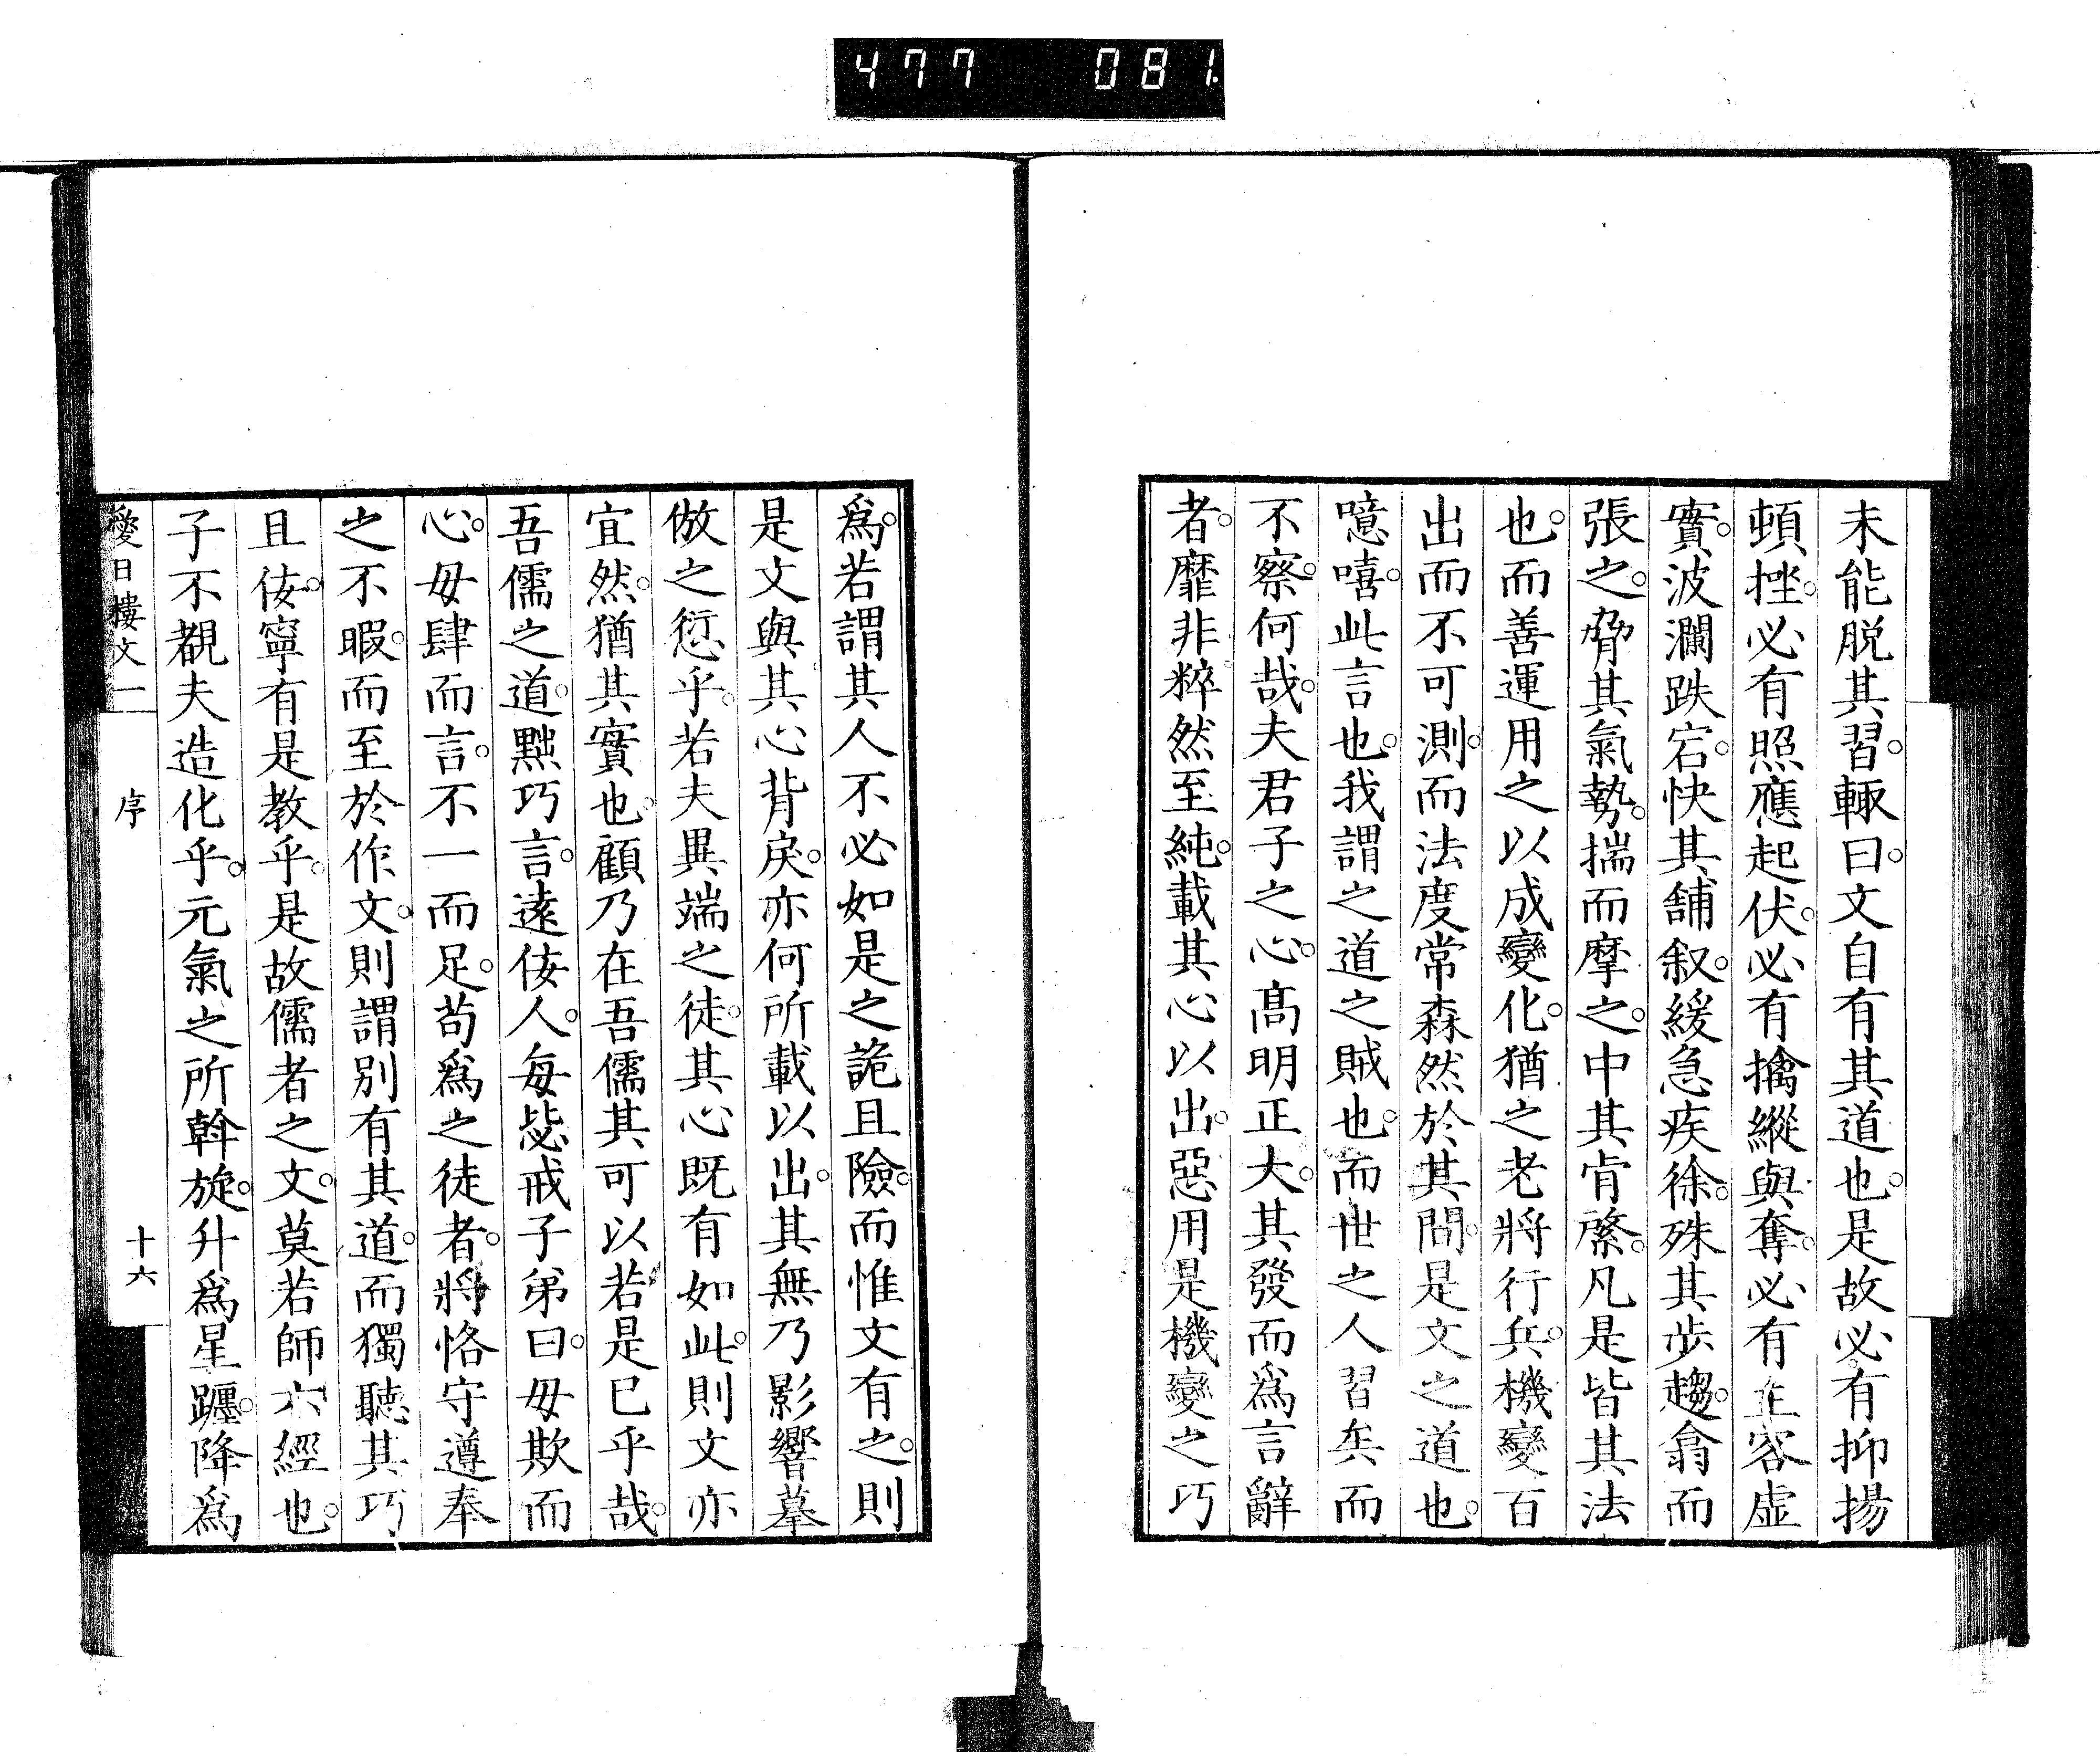 477 081
未能脱其習。輙曰。文自有其道也。是故必有抑揚
頓挫。必有照應起伏。必有擒縱與奪。必有主客虚
實。波瀾跌宕。快其舖叙。緩急疾徐。殊其歩趨。翕而
張之。脅其氣勢。揣而摩之。中其肯綮。凡是皆其法
也。而善運用之以成變化。猶之老將行兵。機變百
出而不可測。而法度常森然於其間。是文之道也。
噫嘻。此言也。我謂之道之賊也。而世之人習矣而
不察。何哉。夫君子之心。高明正大。其發而爲言辭
者。靡非粹然至純。載其心以出。惡用是機變之巧
爲。若謂其人不必如是之詭且險。而惟文有之。則
是文與其心背戾。亦何所載以出。其無乃影響摹
倣之愆乎。若夫異端之徒。其心既有如此。則文亦
宜然。猶其實也。顧乃在吾儒其可以若是已乎哉。
吾儒之道。黜巧言。遠佞人。每毖戒子弟曰。毋欺而
心。毋肆而言。不一而足。苟爲之徒者。將恪守遵奉
之不暇。而至於作文。則謂別有其道。而獨聽其巧
且佞。寧有是教乎。是故儒者之文。莫若師六經也。
子不覩夫造化乎。元氣之所斡旋。升爲星躔。降爲
愛日樓文一 序 十六